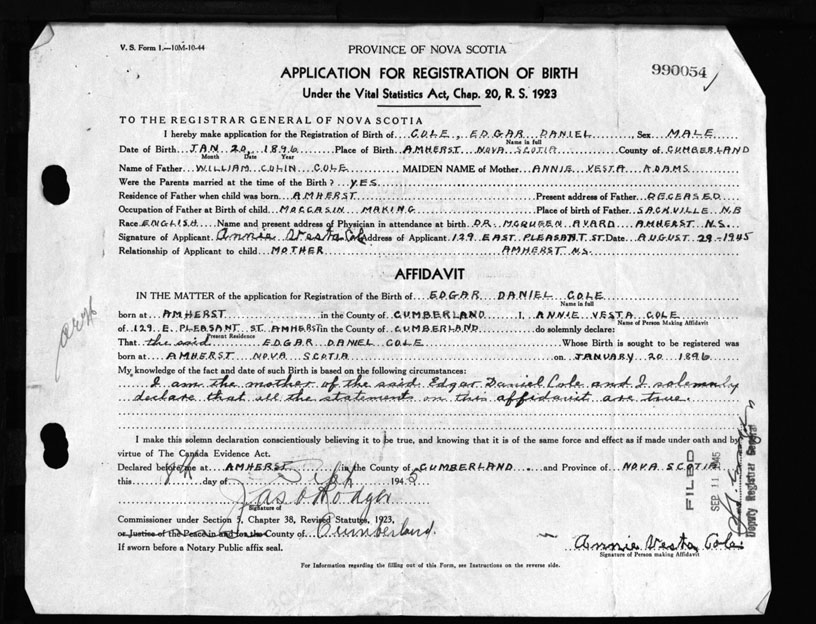 V. S. Form 1.—10M-10-44
PROVINCE OF NOVA SCOTIA
990054
APPLICATION FOR REGISTRATION OF BIRTH
Under the Vital Statistics Act, Chap. 20, R. S. 1923
TO THE REGISTRAR GENERAL OF NOVA SCOTIA
I hereby make application for the Registration of Birth of COLE, EDGAR DANIEL, Sex MALE
Name in full
Date of Birth JAN 20, 1896 Place of Birth AMHERST NOVA SCOTIA County of CUMBERLAND
Month Date Year
Name of Father WILLIAM COLIN COLE MAIDEN NAME of Mother ANNIE VESTA ADAMS
Were the Parents married at the time of the Birth? YES
Residence of Father when child was born AMHERST Present address of Father DECEASED
Occupation of Father at Birth of child MOCCASIN MAKING Place of birth of Father SACKVILLE N.B
Race ENGLISH Name and present address of Physician in attendance at birth DR. MCQUEEN AVARD AMHERST N.S.
Signature of Applicant Annie Vesta Cole Address of Applicant 129 EAST PLEASANT ST. Date AUGUST 29-1945
Relationship of Applicant to child MOTHER AMHERST N.S.
AFFIDAVIT
IN THE MATTER of the application for Registration of the Birth of EDGAR DANIEL COLE
born at AMHERST in the County of CUMBERLAND I, ANNIE VESTA COLE
Name of Person Making Affidavit
of 129 E. PLEASANT ST. AMHERST in the County of CUMBERLAND do solemnly declare:
Present Residence
That the said EDGAR DANIEL COLE Whose Birth is sought to be registered was
born at AMHERST NOVA SCOTIA on JANUARY 20 1896
My knowledge of the fact and date of such Birth is based on the following circumstances:
I am the mother of the said Edgar Daniel Cole and I solemnly
declare that all the statements on this affidavit are true.
I make this solemn declaration conscientiously believing it to be true, and knowing that it is of the same force and effect as if made under oath and by
virtue of The Canada Evidence Act.
Declared before me at AMHERST in the County of CUMBERLAND and Province of NOVA SCOTIA
this 8th day of Sept 1945
Signature of
Commissioner under Section 5, Chapter 38, Revised Statutes, 1923,
or Justice of the Peace in and for the County of Cumberland.
If sworn before a Notary Public affix seal.
Annie Vesta Cole
Signature of Person making Affidavit
For Information regarding the filling out of this Form, see Instructions on the reverse side.
FILED
SEP 11 1945
Deputy Registrar General